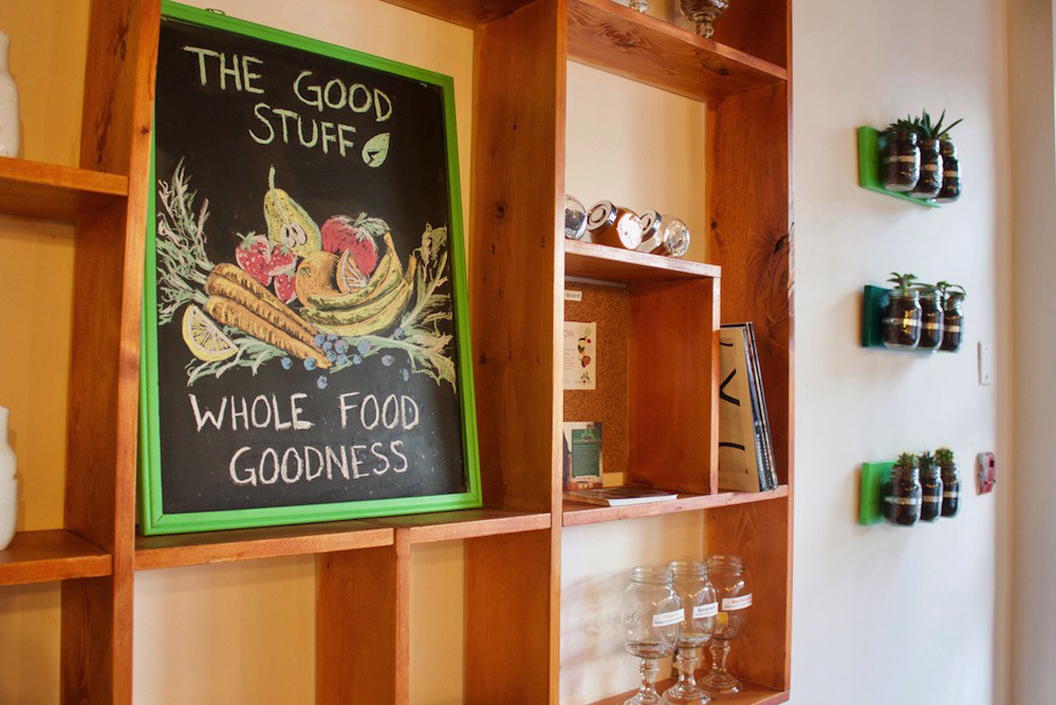 THE GOOD
STUFF
WHOLE FOOD
GOODNESS
Board